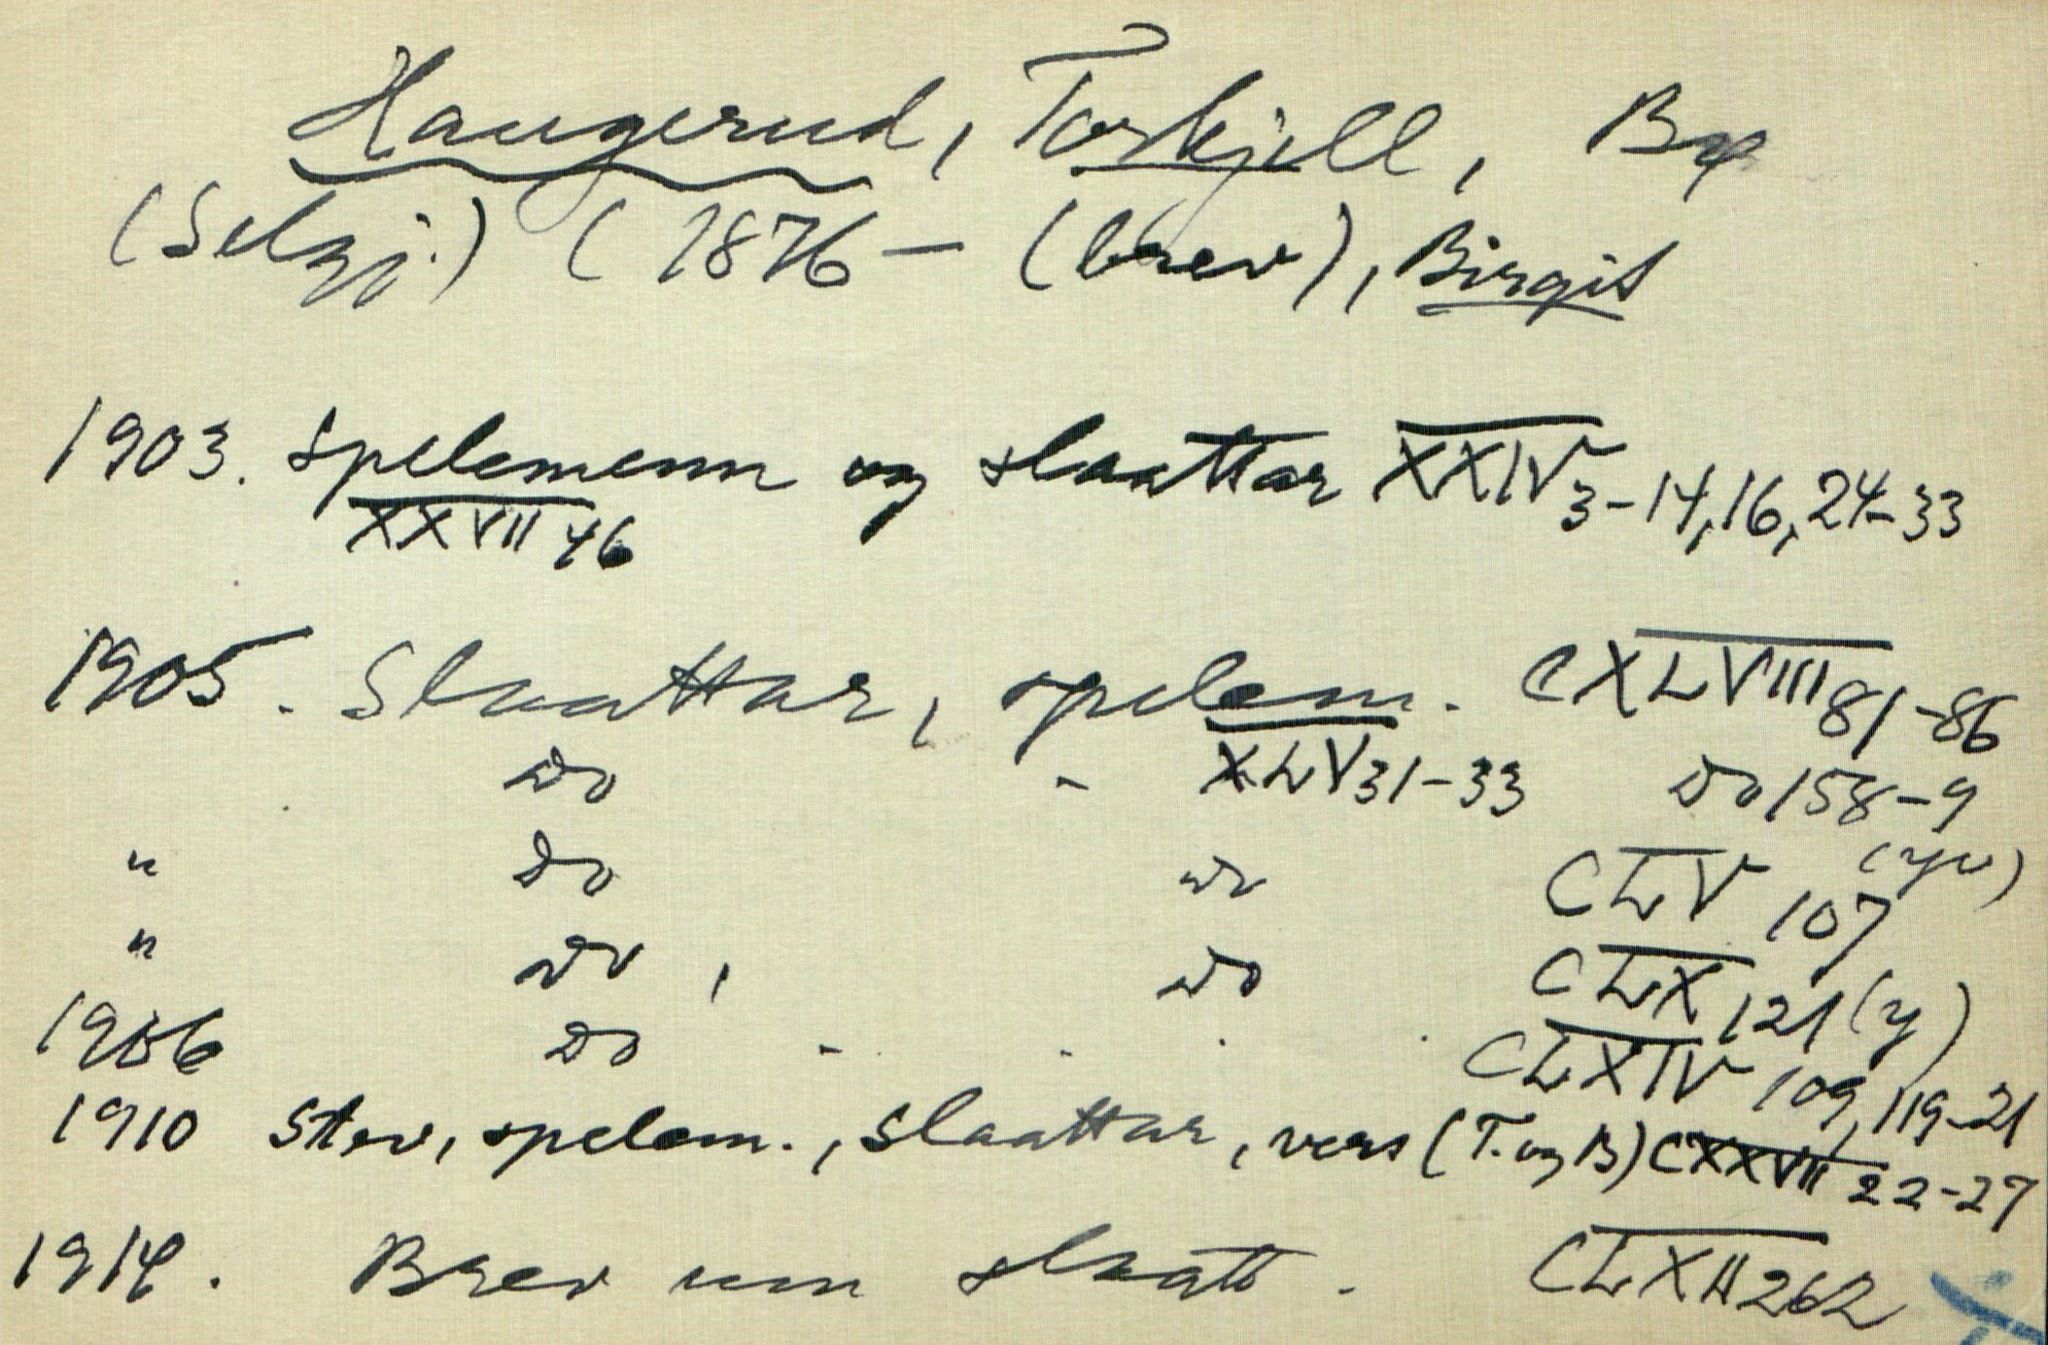 Haugerud, Torkjell, Bø
(Selgj.) (1876 – (brev), Birgit
1903. Spelemenn og slaattar XXIV 3-14, 16, 24-33
XXVII 46
1905. Slaattar, spelem. CXLVIII 81-86
Do - XLV 31-33 Do 158-9
" Do Do CLV 107
" Do, Do CLX 121 (y)
1906 Do - CLXIV 109, 119-21
1910 Stev, spelem., slaattar, vers (T. og B) CXXVII 22-27
1914. Brev um slaatt. CLXII 262